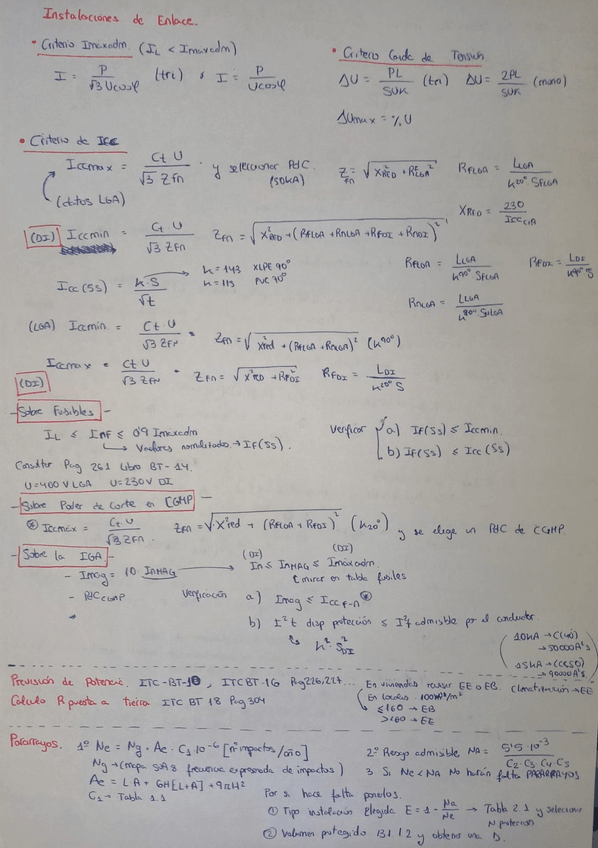 Instalaciones de Enlace.
• Criterio Imaxadm (IL < Imaxadm)
I = P / √3 U cosφ (tri) ó I = P / U cosφ
• Criterio Caída de Tensión
ΔU = PL / SUK (tri) ΔU = 2PL / SUK (mono)
ΔUmax = % U
• Criterio de ICC
Iccmax = Ct U / √3 Zfn y seleccionar PdC. (50kA)
(datos LGA)
Zfn = √(XRED² + RLGA²) RFLGA = LLGA / K20° SFLGA
XRED = 230 / Icc
(DI) Iccmin = Ct U / √3 Zfn Zfn = √(X²RED + (RFLGA + RNLGA + RFDI + RNDI)²)
RFLGA = LLGA / K90° SFLGA RFDI = LDI / K90° S
Icc (5s) = K·S / √t K = 143 XLPE 90° K = 115 PVC 70°
RNLGA = LLGA / K90° SNLGA
(LGA) Iccmin = Ct·U / √3 ZFN Zfn = √(X²red + (RFLGA + RNLGA)²) (K90°)
Iccmax = Ct U / √3 ZFN ZFN = √(X²RED + RFDI²) RFDI = LDI / K20° S
(DI)
- Sobre Fusibles -
IL ≤ INF ≤ 0'9 Imaxadm
Valores normalizados → IF(5s).
Verificar a) IF(5s) ≤ Iccmin.
b) IF(5s) ≤ Icc (5s)
Consultar Pag 261 Libro BT-14.
U=400V LGA U=230V DI
- Sobre Poder de Corte en CGMP -
Iccmáx = Ct U / √3 ZFN ZFN = √(X²red + (RFLGA + RFDI)²) (K20°) y se elige un PdC de CGMP.
- Sobre la IGA -
- Imag = 10 INMAG → (DI) In ≤ INMAG ≤ Imáxadm (DI)
mirar en tabla fusibles
- PdCCGMP Verificación a) Imag ≤ ICC F-n
b) I²t disp protección ≤ I²t admisible por el conductor.
K²·S²DI
10kA → C(40) → 50000A²s
15kA → C(≤50) → 90000A²s
Previsión de Potencia. ITC-BT-10, ITCBT-16 Pag 226,227... En viviendas revisar EE o EB. Climatización→EE
En locales · 100W/m²
≤160 → EB
>160 → EE
Calculo R puesta a tierra ITC BT 18 Pag 304
Pararrayos. 1º Ne = Ng · Ae · C1 10⁻⁶ [nº impactos/año]
Ng → (mapa frecuencia esperada de impactos)
Ae = LA + 6H[L+A] + 9πH²
C1 → Tabla 1.1
2º Riesgo admisible Na = 5'5·10⁻³ / C2·C3·C4·C5
3. Si Ne < Na No harán falta PARARRAYOS
Por si hace falta ponerlos.
① Tipo instalación elegida E = 1 - Na / Ne → Tabla 2.1 y seleccionar N protección
② Volumen protegido B.1.1.2 y obtener una D.